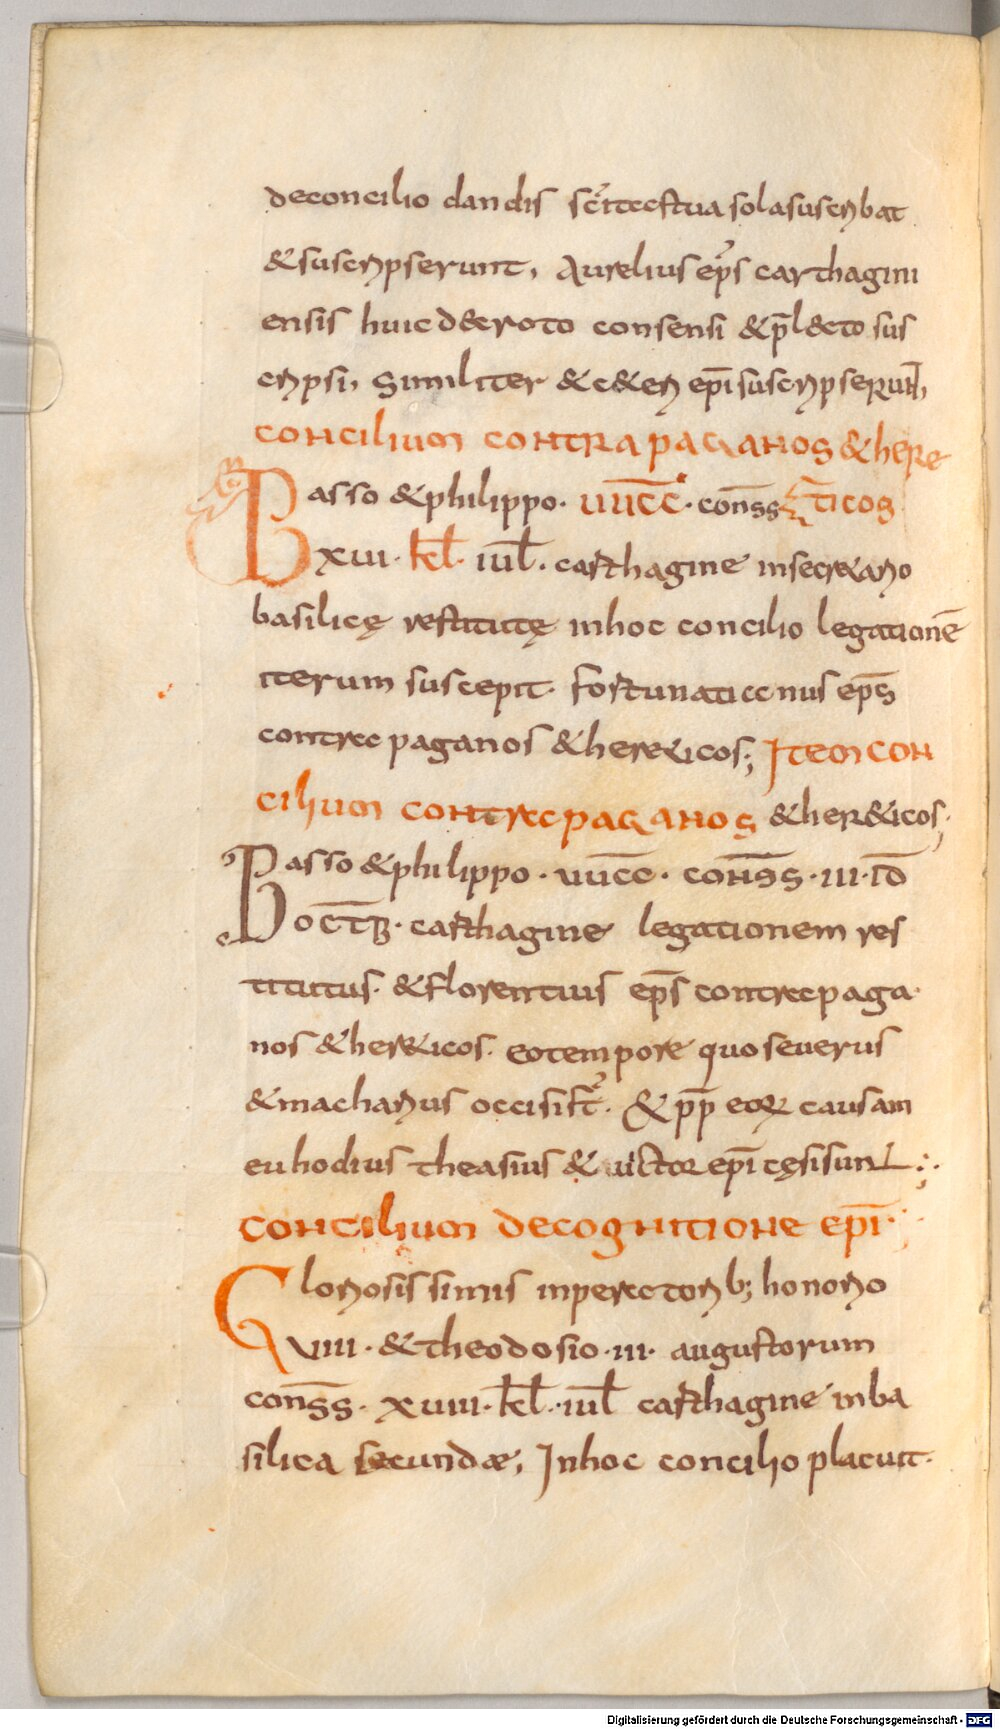 deconcilio dandis sc̄itectua solasuscribat
&suscripserunt, Aurelius ep̄s carthagini
ensis huic d&eroto consensi &p̄l&cto sus
cripsi, Similiter &c&eri ep̄i suscripserun̄t,
concilium contra paganos &here
Basso &philippo· uu̅c̅c̅· con̅ss ticos
xvii· kl̅· iul̅· carthagine insecretario
basilicę restitutę inhoc concilio legationē
iterum suscepit· fortunatianus ep̄s
contra paganos &hereticos; Item con
cilium contra paganos &her&icos;
Basso &philippo· uu̅c̅c̅· con̅ss· iii· id̅
oct̅b· carthagine legationem res
titutus· &florentius ep̄s contra paga
nos &her&icos· eotempore quo seuerus
&macharius occisi st̅· &p̄p eorum causam
euhodius theasius &uictor ep̄i cęsi sunt;
concilium decognitione ep̄i·
Gloriosissimis inperatorib; honorio
viii· &theodosio·iii· augustorum
con̅ss· xviiii· kl̅· iul̅ carthagine inba
silica secundæ; Inhoc concilio placuit·
Digitalisierung gefördert durch die Deutsche Forschungsgemeinschaft - DFG